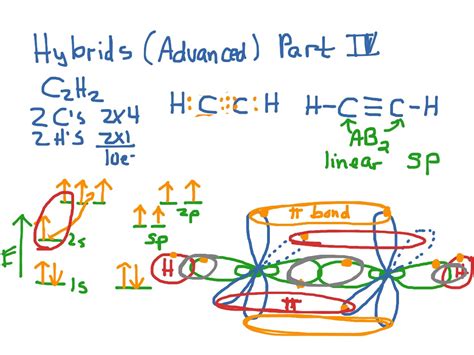 Hybrids (Advanced) Part IV
C2H2
2 C's 2x4
2 H's 2x1
10e-
H:C:::C:H
H-C≡C-H
AB2
linear sp
E
2s
1s
2p
sp
π bond
H
H
π